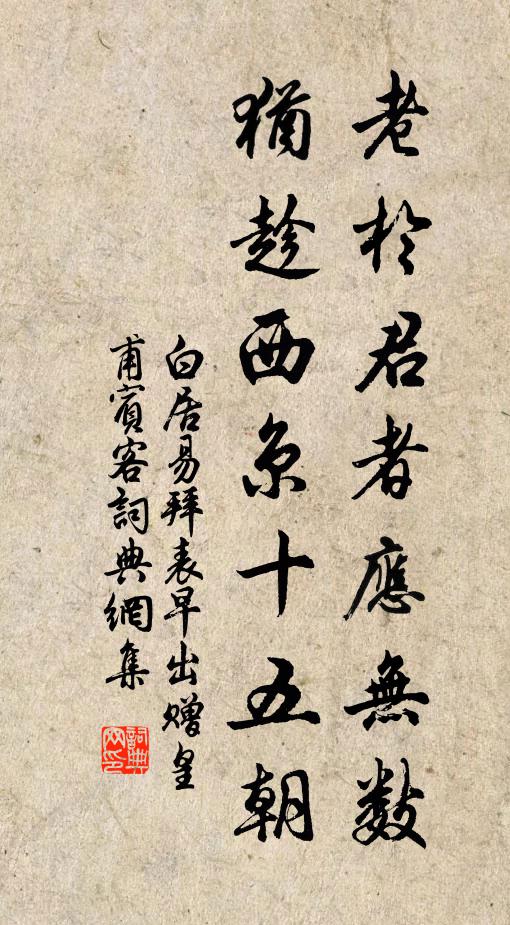 老於君者應無數
猶趁西京十五朝
白居易拜表早出贈皇
甫賓客詞典網集
詞典網印